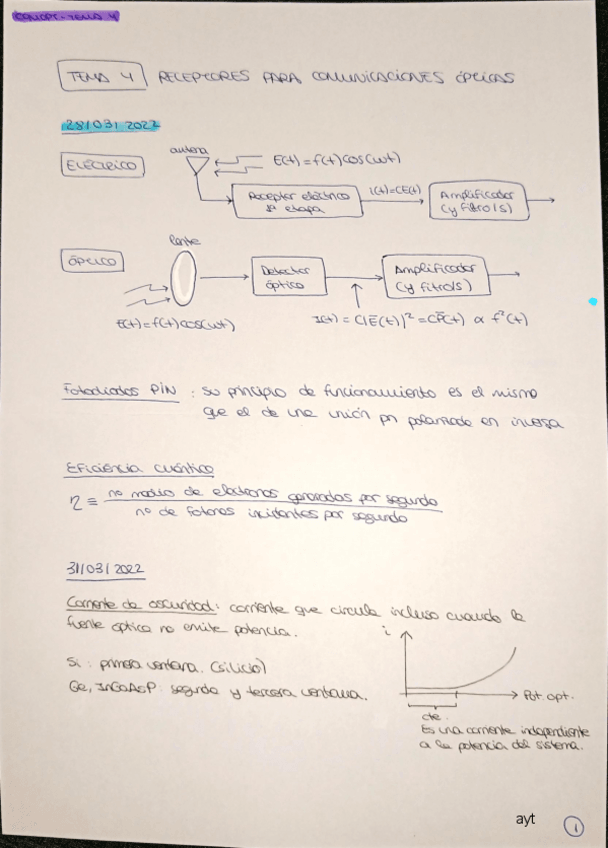 TEMA 4 RECEPTORES PARA COMUNICACIONES ÓPTICAS
28/03/2022
ELÉCTRICO
antena
E(t)=f(t)cos(ωt)
Receptor eléctrico
1ª etapa
I(t)=CE(t)
Amplificador
(y filtro/s)
ÓPTICO
lente
Detector
óptico
Amplificador
(y filtro/s)
E(t)=f(t)cos(ωt)
I(t) = C|Ē(t)|² = CP̄(t) ∝ f²(t)
Fotodiodos PIN : su principio de funcionamiento es el mismo
que el de una unión pn polarizada en inversa
Eficiencia cuántica
η ≡ nº medio de electrones generados por segundo
nº de fotones incidentes por segundo
31/03/2022
Corriente de oscuridad: corriente que circula incluso cuando la
fuente óptica no emite potencia.
Si : primera ventana. (silicio)
Ge, InGaAsP : segunda y tercera ventana.
i
Pot. opt.
cte.
Es una corriente independiente
a la potencia del sistema.
ayt
1